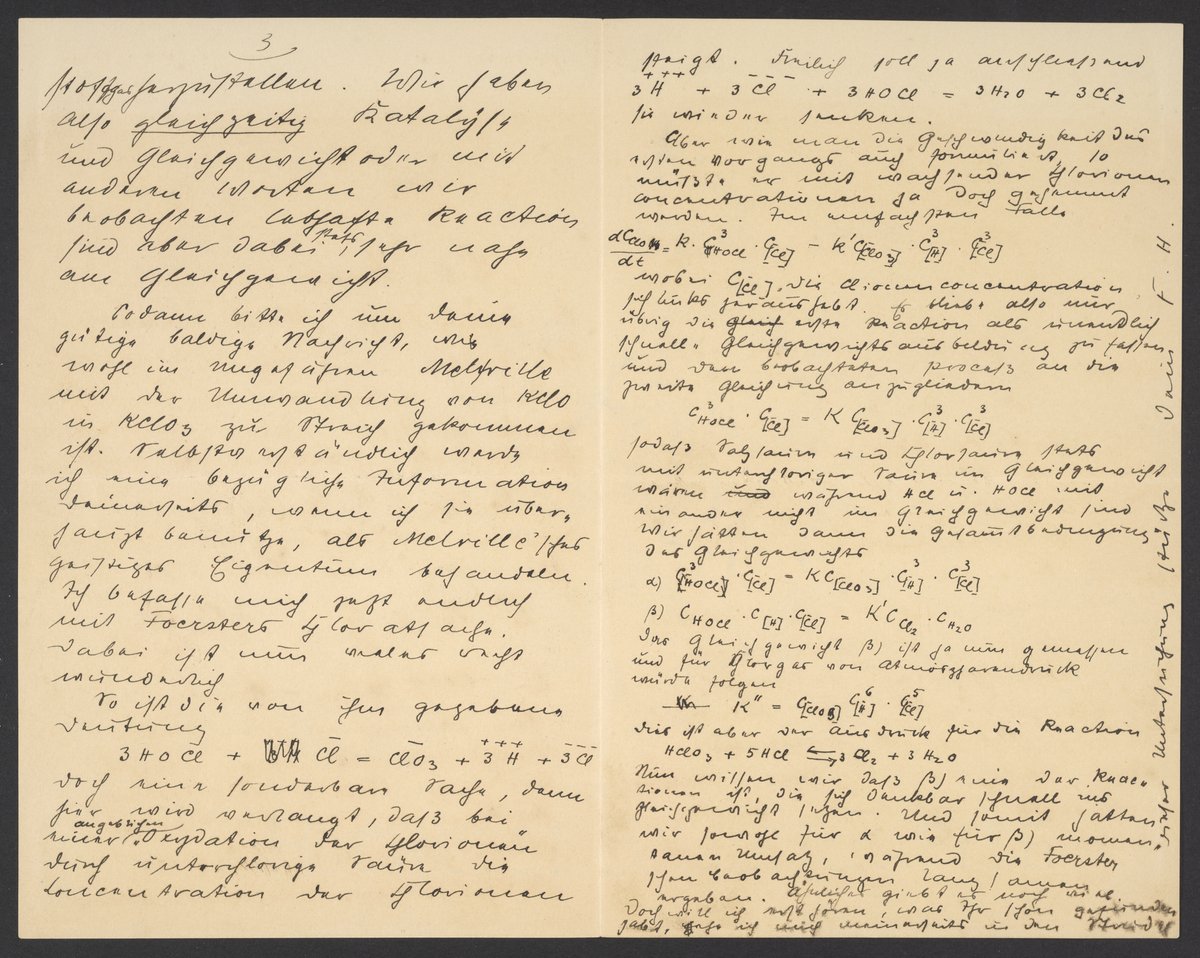 3
stoffgas herzustellen. Wir haben
also gleichzeitig Katalyse
und Gleichgewicht oder mit
anderen Worten wir
beobachten lebhafte Reaction
sind aber dabei stets sehr nahe
am Gleichgewicht.
Sodann bitte ich um Deine
gütige baldige Nachricht, wie
wohl im Ungefähren Melville
mit der Umwandlung von KClO
in KClO3 zu Streich gekommen
ist. Selbstverständlich werde
ich eine bezügliche Information
Deinerseits, wenn ich sie über-
haupt benutze, als Melville'sches
geistiges Eigentum behandeln.
Ich befasse mich jetzt endlich
mit Foersters Chloratsache.
Dabei ist nun vieles recht
wunderlich
So ist die von ihm gegebene
Deutung
3 HOCl + Cl̄ = C̄lO3 + 3 H + 3 Cl
doch eine sonderbare Sache, denn
hier wird verlangt, daß bei
einer angeblichen „Oxydation der Chlorionen"
durch unterchlorige Säure die
Concentration der Chlorionen
steigt. Freilich soll ja anschließend
3 H + 3 Cl + 3 HOCl = 3 H2O + 3 Cl2
sie wieder senken.
Aber wie man die Geschwindigkeit des
ersten Vorgangs auch formuliert, so
müßte er mit wachsender Chlorionen
concentrationen ja doch gehemmt
werden. Im einfachsten Falle
dCClO3/dt = K · C³HOCl · C[Cl] − K' C[ClO3] · C³[H] · C³[Cl]
wobei C[Cl], die Clionenconcentration
sich links heraushebt. Es bliebe also nur
übrig die erste Reaction als unendlich
schnelle Gleichgewichtsausbildung zu fassen
und den beobachteten Proceß an die
zweite Gleichung anzugliedern
C³HOCl · C[Cl] = K C[ClO3] · C³[H] · C³[Cl]
sodaß Salzsäure und Chlorsäure stets
mit unterchloriger Säure im Gleichgewicht
wären während HCl u. HOCl mit
einander nicht im Gleichgewicht sind
Wir hätten dann die Gesamtbedingung
des Gleichgewichts
α) C³[HOCl] · C[Cl] = K C[ClO3] · C³[H] · C³[Cl]
β) CHOCl · C[H] · C[Cl] = K' CCl2 · CH2O
Das Gleichgewicht β) ist ja nun gemessen
und für Chlorgas von Atmosphärendruck
würde folgen
K" = C[ClO3] C⁶[H] · C⁵[Cl]
dies ist aber der Ausdruck für die Reaction
HClO3 + 5 HCl ⇌ 3 Cl2 + 3 H2O
Nun wissen wir daß β) eine der Reac-
tionen ist, die sich denkbar schnell ins
Gleichgewicht setzen. Und somit hätten
wir sowohl für α wie für β) momen-
tanen Umsatz, während die Foerster
schen Beobachtungen langsamen
ergeben. Ähnliches giebt es noch viel
Doch will ich erst hören, was Ihr schon gefunden
habt, ehe ich mich meinerseits in den Strudel
dieser Untersuchung stürze Dein F. H.